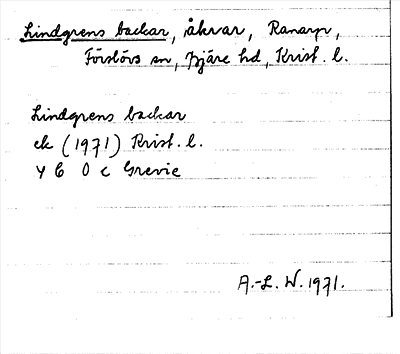 Lindgrens backar, åkrar, Ranarp,
Förslövs sn, Bjäre hd, Krist. l.
Lindgrens backar
ek (1971) Krist. l.
4 C 0 c Grevie
A.-L. W. 1971.